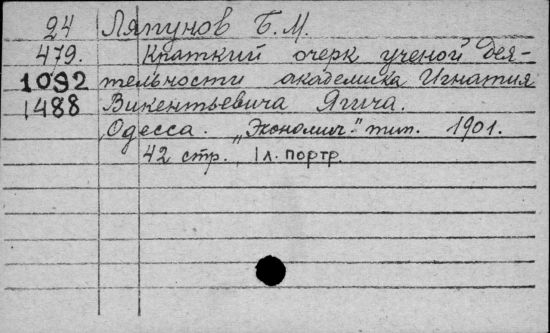 24 Ляпунов Б. М.
479. Краткий очерк ученой дея-
1092 тельности академика Игнатия
1488 Викентьевича Ягича.
Одесса. „Экономич." тип. 1901.
42 стр., 1 л. портр.